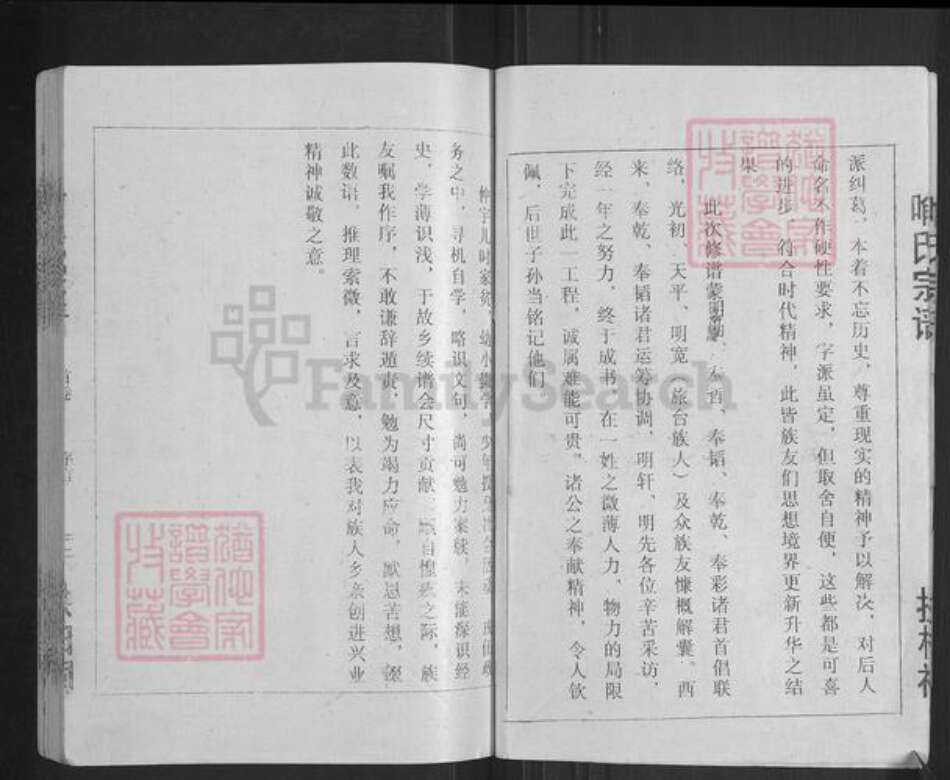 氏宗谱
派纠葛，本着不忘历史，尊重现实的精神予以解决，对后人
命名不作硬性要求，字派虽定，但取舍自便，这些都是可喜
的进步，符合时代精神，此皆族友们思想境界更新升华之结
果。
此次修谱蒙 奉韬、奉乾、奉彩诸君首倡联
络，光初、天平、明宽（旅台族人）及众族友慷慨解囊。西
来、奉乾、奉韬诸君运筹协调，明轩、明先各位辛苦采访，
经一年之努力，终于成书，在一姓之微薄人力，物力的局限
下完成此一工程，诚属难能可贵。诸公之奉献精神，令人钦
佩，后世子孙当铭记他们
儿时家贫，幼小 学，少年
务之中，寻机自学，略识文句，尚可勉力案牍，未能深识经
史，学薄识浅，于故乡续谱会尺寸贡献， 自惶 之际，族
友嘱我作序，不敢谦辞遁责，勉为竭力应命， 思苦想，缀
此数语，推理索微，言求及意，以表我对族人乡亲创进兴业
精神诚敬之意。
首卷
序言
FamilySearch
谱学会
收藏
谱学会
收藏